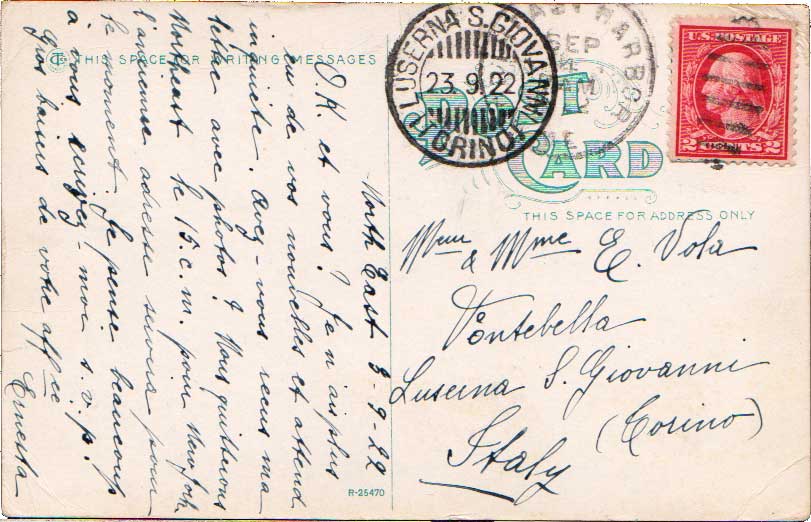 THIS SPACE FOR WRITING MESSAGES
North East 3-9-22
O.K. et vous? Je n'ai plus
eu de vos nouvelles et attend
inquiète. Avez-vous reçus ma
lettre avec photos? Nous quitterons
Northeast le 15.c.m. pour New York
l'ancienne adresse suivra pour
le moment. Je pense beaucoup
à vous. Écrivez-moi s.v.p.
Gros baisers de votre aff.ée
Ernesta
R-25470
LUSERNA S. GIOVANNI
23.9.22
(TORINO)
HARBOR
SEP
4
AM
ME.
U.S. POSTAGE
2 CENTS 2
POST CARD
THIS SPACE FOR ADDRESS ONLY
Mme E. Vola
Luserna S. Giovanni
(Torino)
Italy